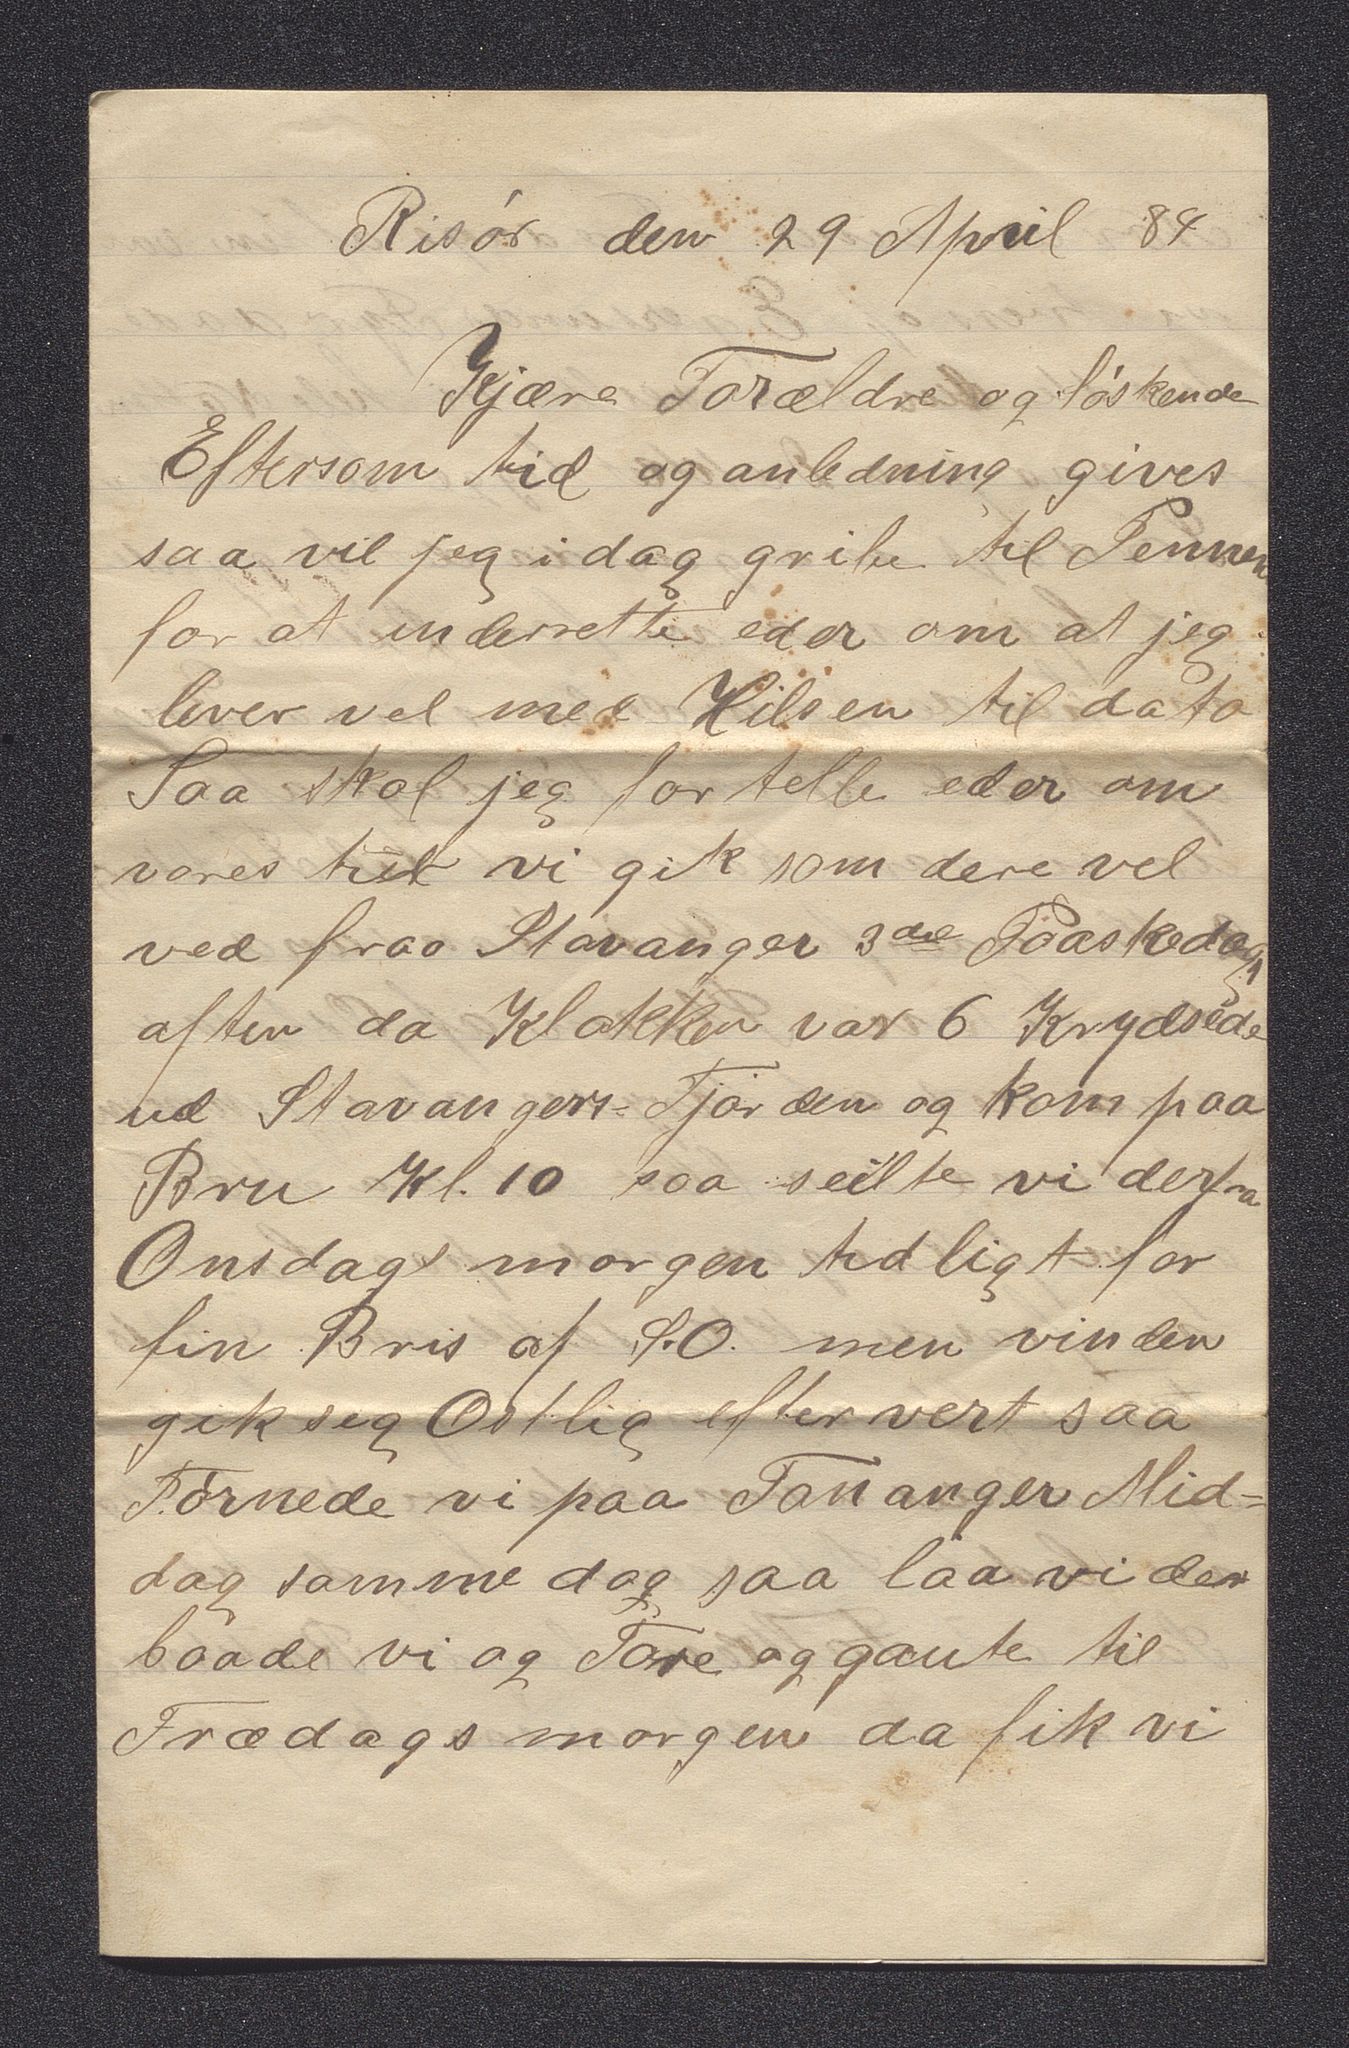 Risór den 29 April 84
Kjære Forældre og söskende
Eftersom tid og anledning gives
saa vil jeg i dag gribe til Pennen
for at underrette eder om at jeg
lever vel med Hilsen til dato
Saa skal jeg fortelle eder om
vores tid vi gik som dere vel
ved fraa Stavanger 3die Paaskedags
aften da Klokken var 6 Krydsede
ud Stavangers-Fjorden og kom paa
Bru Kl. 10 saa seilte vi derfra
Onsdags morgen tidligt for
fin Bris af S.O. men vinden
gik seg Ostlig efter vert saa
Törnede vi paa Tananger Mid=
dag samme dag saa laa vi der
baade vi og Tore og gaute til
Frædags morgen da fik vi